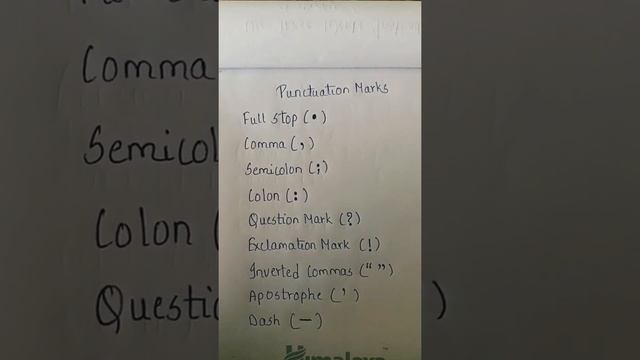 Punctuation Marks
Full Stop (.)
Comma (,)
Semicolon (;)
Colon (:)
Question Mark (?)
Exclamation Mark (!)
Inverted Commas (“ ”)
Apostrophe (’)
Dash (—)
Himalaya
Comma
Semicol
Colon (
Questio
)